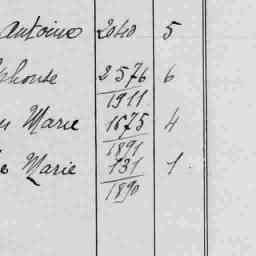 Antoine 2040 5
phonse 2576 6
1911
Marie 1675 4
1891
Marie 131 1
1890